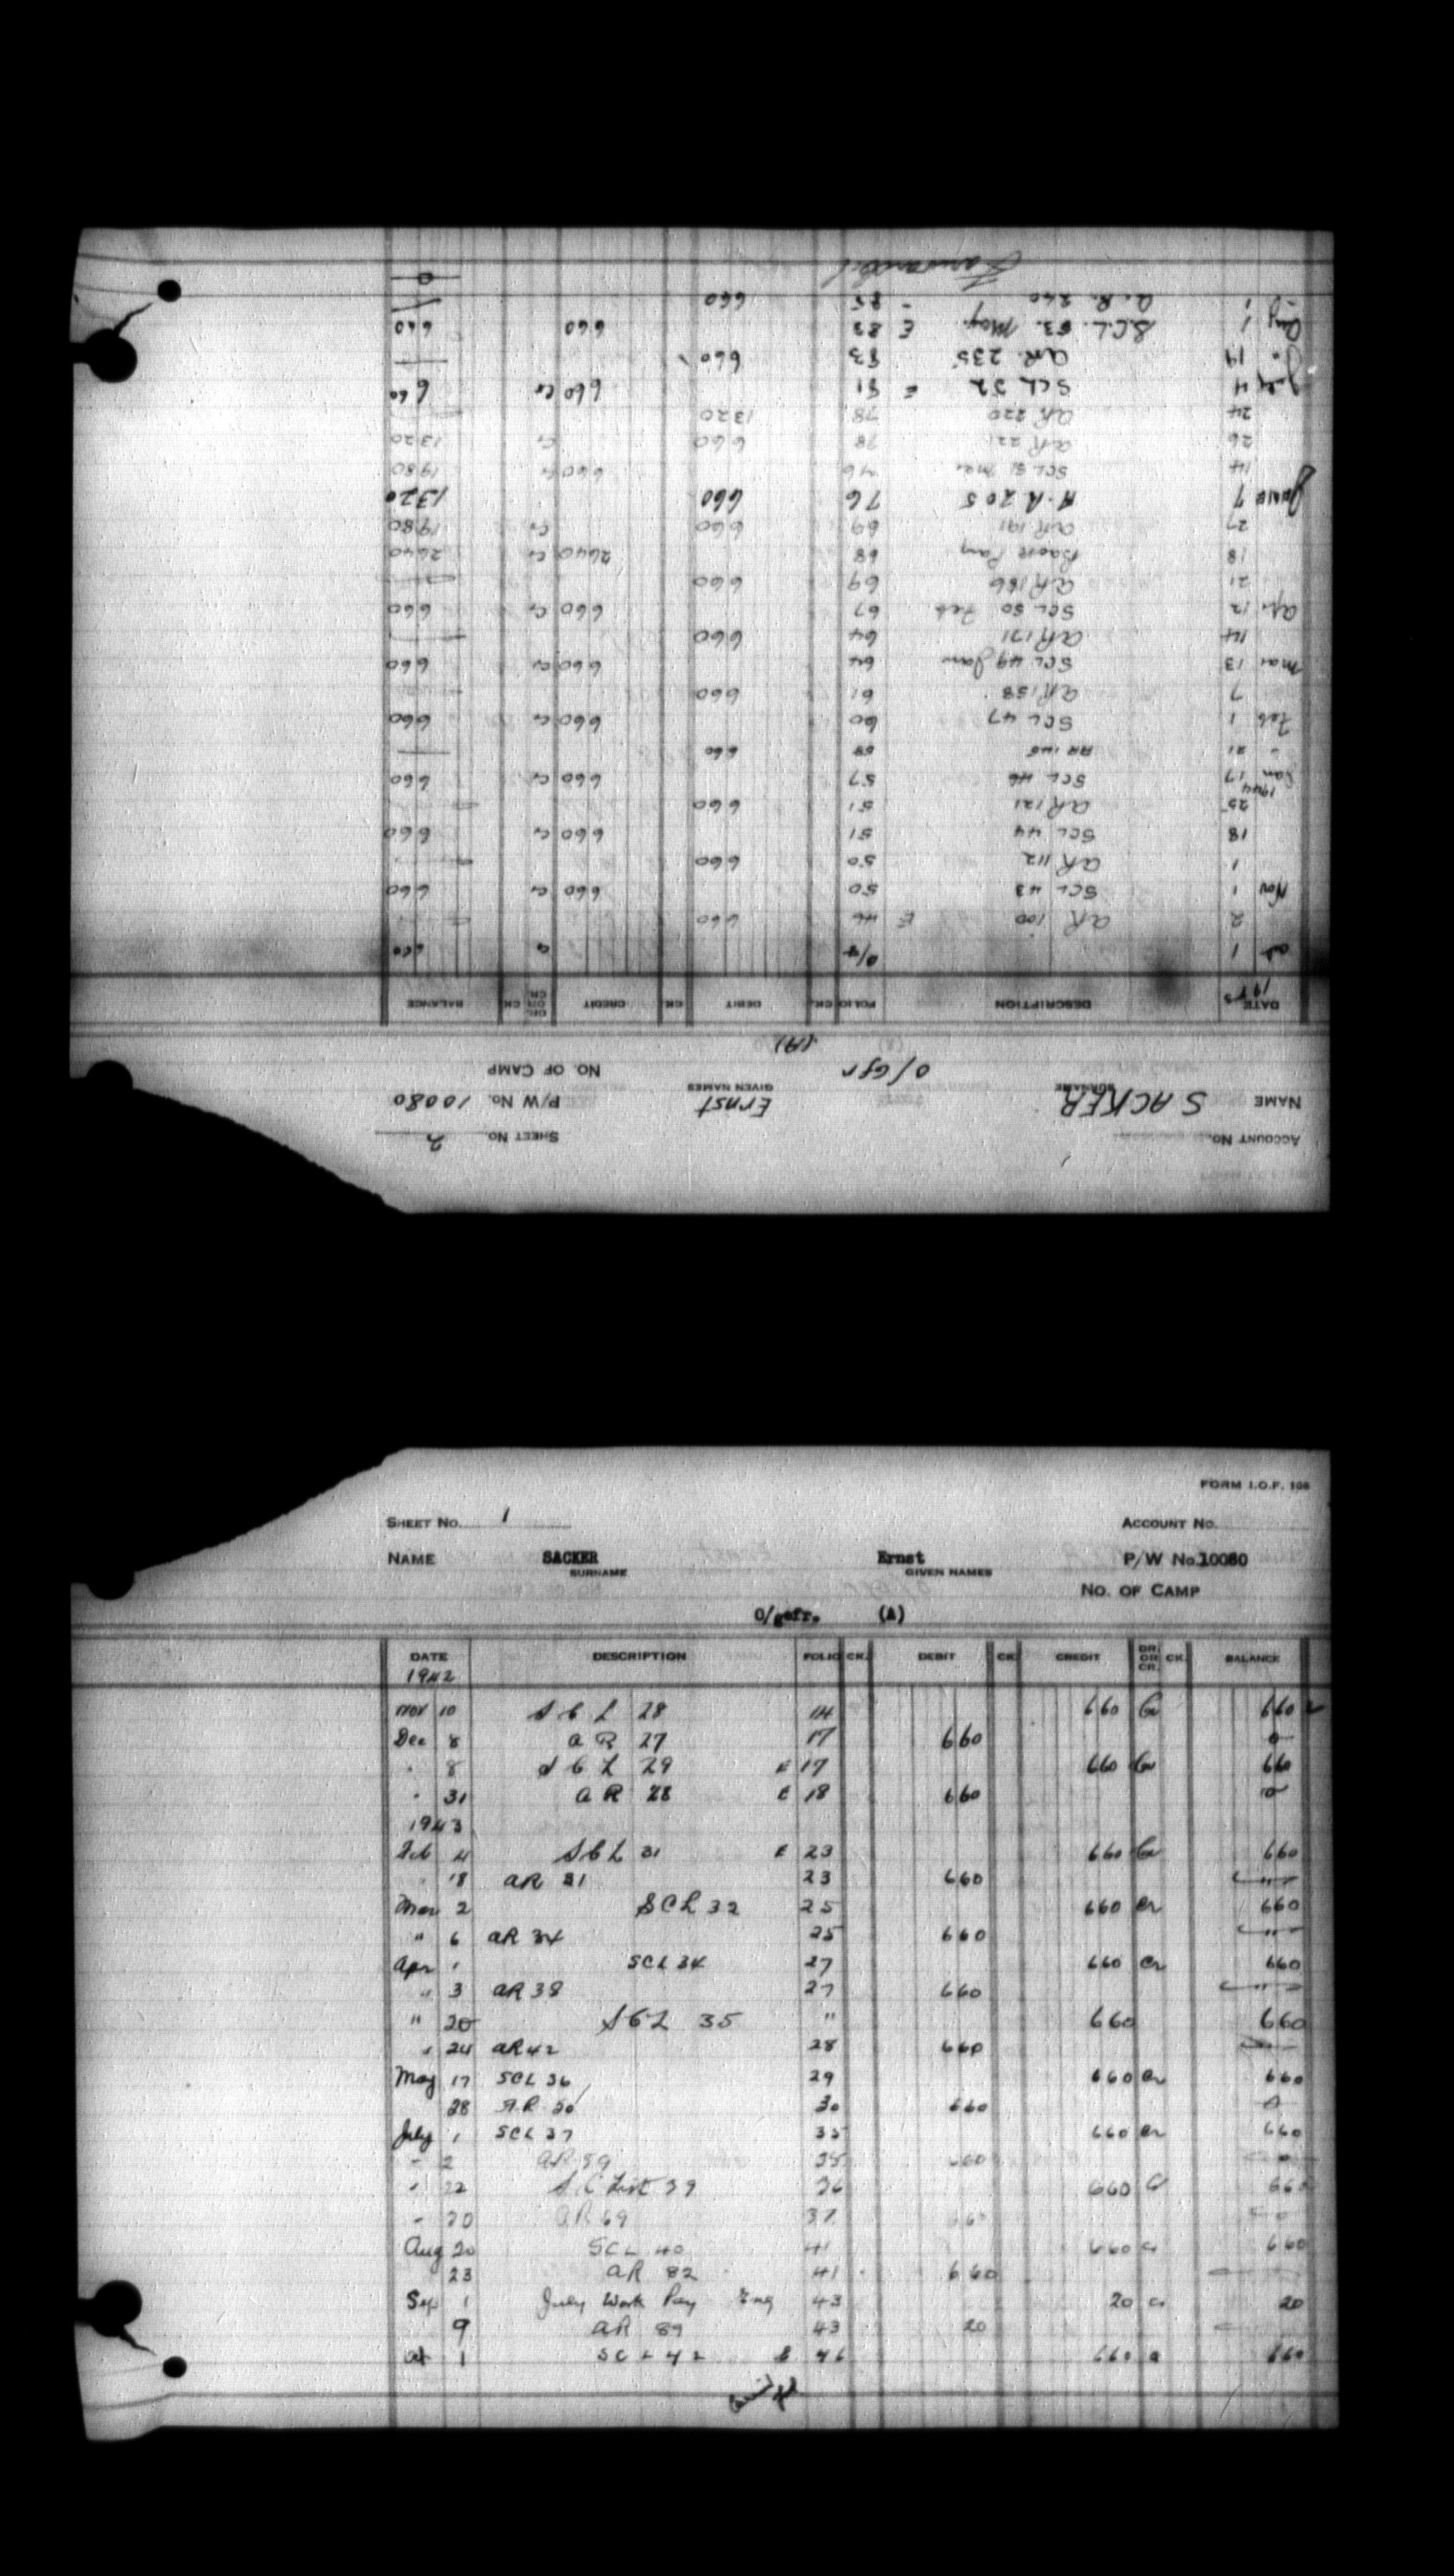 FORM I.O.F. 108
SHEET No. 1 ACCOUNT No.
NAME SACKER Ernst P/W No. 10080
SURNAME GIVEN NAMES
NO. OF CAMP
O/gefr. (A)
DATE DESCRIPTION FOLIO CK. DEBIT CK. CREDIT DR. OR CR. CK. BALANCE
1942
Nov 10 S C L 28 14 660 Cr 660
Dec 8 A R 27 17 660 0
" 8 S C L 29 E 17 660 Cr 660
" 31 A R 28 E 18 660 0
1943
Feb 4 S C L 31 E 23 660 Cr 660
18 AR 31 23 660 "
Mar 2 SCL 32 25 660 Cr 660
" 6 AR 34 25 660 "
Apr 1 SCL 34 27 660 Cr 660
" 3 AR 38 27 660 "
" 20 S C L 35 " 660 660
" 24 AR 42 28 660
May 17 SCL 36 29 660 Cr 660
28 A.R. 50 30 660 0
July 1 SCL 37 35 660 Cr 660
" 2 AR 59 35 660 0
" 22 S C List 39 36 660 Cr 660
" 30 AR 69 37 660 0
Aug 20 SCL 40 41 660 Cr 660
23 AR 82 41 660
Sep 1 July Work Pay Eng 43 20 Cr 20
9 AR 89 43 20
Oct 1 SCL 42 E 46 660 Cr 660
ACCOUNT No. SHEET No. 2
NAME SACKER Ernst P/W No. 10080
SURNAME GIVEN NAMES
O/Gfr NO. OF CAMP
(A)
DATE DESCRIPTION FOLIO CK. DEBIT CK. CREDIT DR. OR CR. CK. BALANCE
1943
Oct 1 O/S Cr 660
2 AR 100 E 46 660 —
Nov 1 SCL 43 50 660 Cr 660
1 AR 112 50 660 —
18 SCL 44 51 660 Cr 660
25 AR 121 51 660 —
1944
Jan 17 SCL 46 57 660 Cr 660
" 21 AR 146 58 660 —
Feb 1 SCL 47 60 660 Cr 660
7 AR 158 61 660 —
Mar 13 SCL 49 Jan 64 660 Cr 660
14 AR 171 64 660 —
Apr 12 SCL 50 Feb 67 660 Cr 660
21 AR 186 69 660 —
18 Back Pay 68 2640 Cr 2640
27 AR 191 69 660 Cr 1980
June 7 A.R 205 76 660 1320
14 SCL 51 Mar 76 660 Cr 1980
26 AR 221 78 660 Cr 1320
24 AR 220 78 1320 —
July 4 SCL 52 E 81 660 Cr 660
19 AR 235 83 660 —
Aug 1 S.C.L. 53. May. E 83 660 660
Aug 1 A.R. 240 85 660
0